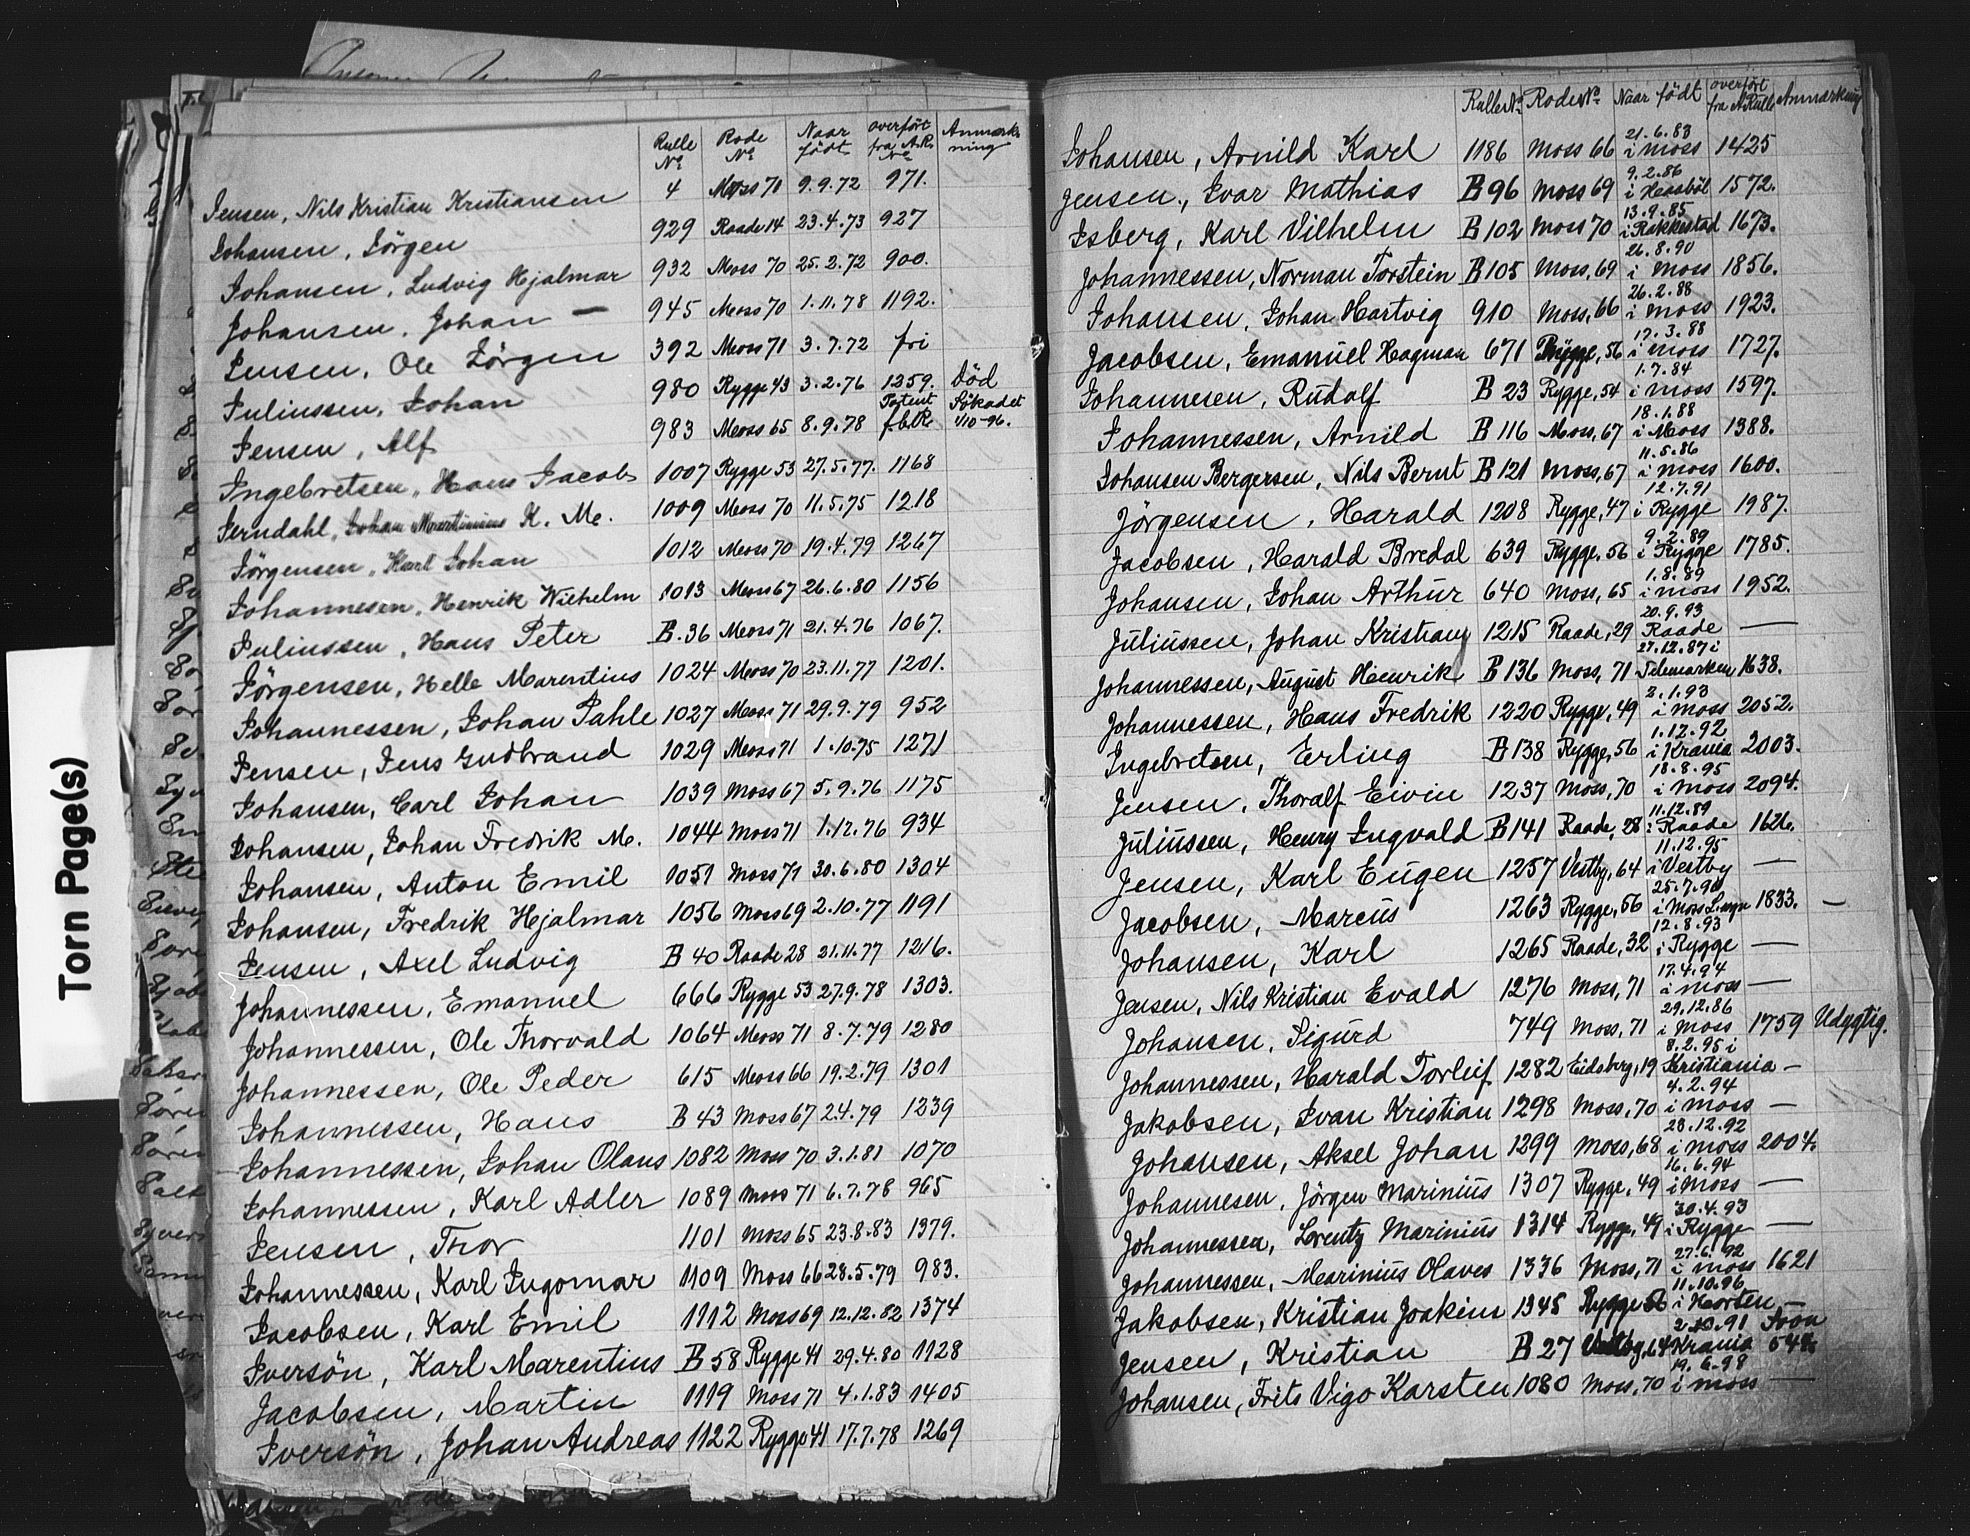 Torn Page(s)
Rulle No Rode No Naar födt overfört fra A.R. No Anmærkning
Jensen, Nils Kristian Kristiansen 4 Moss 71 9.9.72 971.
Johansen, Jörgen 929 Raade 14 23.4.73 927
Johansen, Ludvig Hjalmar 932 Moss 70 25.2.72 900.
Johansen, Johan — 945 Moss 70 1.11.78 1192.
Jensen, Ole Jörgen 392 Moss 71 3.7.72 fri
Juliussen, Johan 980 Rygge 43 3.2.76 1259. Död
Jensen, Alf 983 Moss 65 8.9.78 Patent f.b.R. Sökadet 1/10-96.
Ingebretsen, Hans Jacob 1007 Rygge 53 27.5.77. 1168
Jerndahl, Johan Martinius K. M. 1009 Moss 70 11.5.75 1218
Jörgensen, Karl Johan 1012 Moss 70 19.4.79 1267
Johannesen, Henrik Wilhelm 1013 Moss 67 26.6.80 1156
Juliussen, Hans Peter B.36 Moss 71 21.4.76 1067.
Jörgensen, Helle Marentius 1024 Moss 70 23.11.77 1201.
Johannessen, Johan Pahle 1027 Moss 71 29.9.79 952
Jensen, Jens Gudbrand 1029 Moss 71 1.10.75 1271
Johansen, Carl Johan 1039 Moss 67 5.9.76 1175
Johansen, Johan Fredrik M. 1044 Moss 71 1.12.76 934
Johansen, Anton Emil 1051 Moss 71 30.6.80 1304
Johansen, Fredrik Hjalmar 1056 Moss 69 2.10.77 1191
Jensen, Axel Ludvig B 40 Raade 28 21.11.77 1216.
Johannessen, Emanuel 666 Rygge 53 27.9.78 1303.
Johannessen, Ole Thorvald 1064 Moss 71 8.7.79 1280
Johannessen, Ole Peder 615 Moss 66 19.2.79 1301
Johannessen, Hans B 43 Moss 67 2.4.79 1239
Johannessen, Johan Olaus 1082 Moss 70 3.1.81 1070
Johannessen, Karl Adler 1089 Moss 71 6.7.78 965
Jensen, Thor 1101 Moss 65 23.8.83 1379.
Johannessen, Karl Ingomar 1109 Moss 66 28.5.79 983.
Jacobsen, Karl Emil 1112 Moss 69 12.12.82 1374
Iversön, Karl Marentius B 58 Rygge 41 29.4.80 1128
Jacobsen, Martin 1119 Moss 71 4.1.83 1405
Iversön, Johan Andreas 1122 Rygge 41 17.7.78 1269
Rulle No Rode No Naar födt overfört fra A Rulle Anmærkning
Johansen, Arnild Karl 1186 Moss 66 21.6.83 i Moss 1425
Jensen, Ivar Mathias B 96 Moss 69 9.2.86 i Haaböl 1572.
Isberg, Karl Vilhelm B 102 Moss 70 13.9.85 i Rakkestad 1673.
Johannessen, Norman Torstein B 105 Moss, 69 26.8.90 i Moss 1856.
Johansen, Johan Hartvig 910 Moss, 66 26.2.88 i Moss 1923.
Jacobsen, Emanuel Hagman 671 Rygge, 56 17.3.88 i Moss 1727.
Johannesen, Rudolf B 23 Rygge, 54 1.7.84 i Moss 1597.
Johannessen, Arnild B 116 Moss, 67 18.1.88 i Moss 1388.
Johansen Bergersen, Nils Bernt B 121 Moss, 67 11.5.86 i Moss 1600.
Jörgensen, Harald 1208 Rygge, 47 12.7.91 i Rygge 1987.
Jacobsen, Harald Bredal 639 Rygge, 56 9.2.89 i Rygge 1785.
Johansen, Johan Arthur 640 Moss, 65 1.8.89 i Moss 1952.
Juliussen, Johan Kristian 1215 Raade, 29 20.9.93 Raade —
Johannessen, August Henrik B 136 Moss, 71 27.12.87 i Telemarken 1638.
Johannessen, Hans Fredrik 1220 Rygge, 49 2.1.93 i Moss 2052.
Ingebretsen, Erling B 138 Rygge, 56 1.12.92 i Krania 2003.
Jensen, Thoralf Eivin 1237 Moss, 70 18.8.95 i Moss 2094.
Juliussen, Henry Ingvald B 141 Raade, 28 11.12.89 i Raade 1626.
Jensen, Karl Eugen 1257 Vestby, 64 11.12.95 i Vestby —
Jacobsen, Marcus 1263 Rygge, 56 25.7.90 i Moss 1833. —
Johansen, Karl 1265 Raade, 32 12.8.93 i Rygge —
Jensen, Nils Kristian Evald 1276 Moss, 71 17.4.94 i Moss —
Johansen, Sigurd 749 Moss, 71 29.12.86 i Moss 1759 Udygtig.
Johannessen, Harald Torleif 1282 Eidsberg, 19 8.2.95 i Kristiania —
Jakobsen, Ivan Kristian 1298 Moss, 70 4.2.94 i Moss —
Johansen, Aksel Johan 1299 Moss, 68 28.12.92 i Moss 2004.
Johannesen, Jörgen Marinius 1307 Rygge, 49 16.6.94 i Moss —
Johannessen, Lorentz Marinius 1314 Rygge, 49 30.4.93 i Rygge —
Johannessen, Marinius Olaves 1336 Moss, 71 27.6.92 i Moss 1621
Jakobsen, Kristian Joakim 1345 Rygge 56 11.10.96 i Horten —
Jensen, Kristian B 27 Vestby, 64 2.10.91 Krania 542
Johansen, Frits Vigo Karsten 1080 Moss, 70 19.6.98 i Moss —